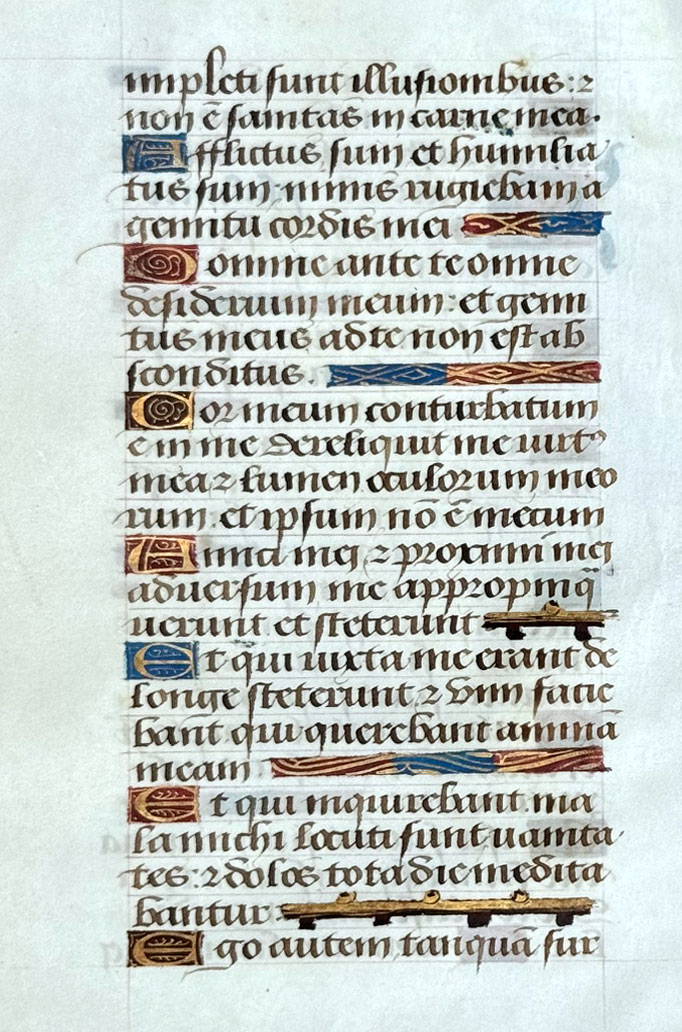 impleti sunt illusionibus: ⁊
non ē sanitas in carne mea.
Afflictus sum et humilia
tus sum nimis rugiebam a
gemitu cordis mei
Domine ante te omne
desiderium meum: et gemi
tus meus ad te non est ab
sconditus.
Cor meum conturbatum
e in me dereliquit me virtꝰ
mea ⁊ lumen oculorum meo
rum. et ipsum nō ē mecum
Amici mei ⁊ proximi mei
adversum me appropinq̄
verunt et steterunt
Et qui iuxta me erant de
longe steterunt ⁊ vim facie
bant qui querebant animā
meam
Et qui inquirebant ma
la michi locuti sunt vanita
tes: ⁊ dolos tota die medita
bantur.
Ego autem tanquā sur